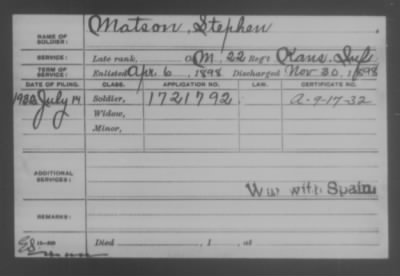 NAME OF SOLDIER: Matson, Stephen
SERVICE: Late rank, M, 22 Reg't Kans. Inf.
TERM OF SERVICE: Enlisted Apr. 6, 1898 Discharged Nov. 30, 1898
DATE OF FILING. CLASS. APPLICATION NO. LAW. CERTIFICATE NO.
July 14 Soldier, 1721792 A-9-17-32
Widow,
Minor,
ADDITIONAL SERVICES: War with Spain
REMARKS:
Died , 1 , at